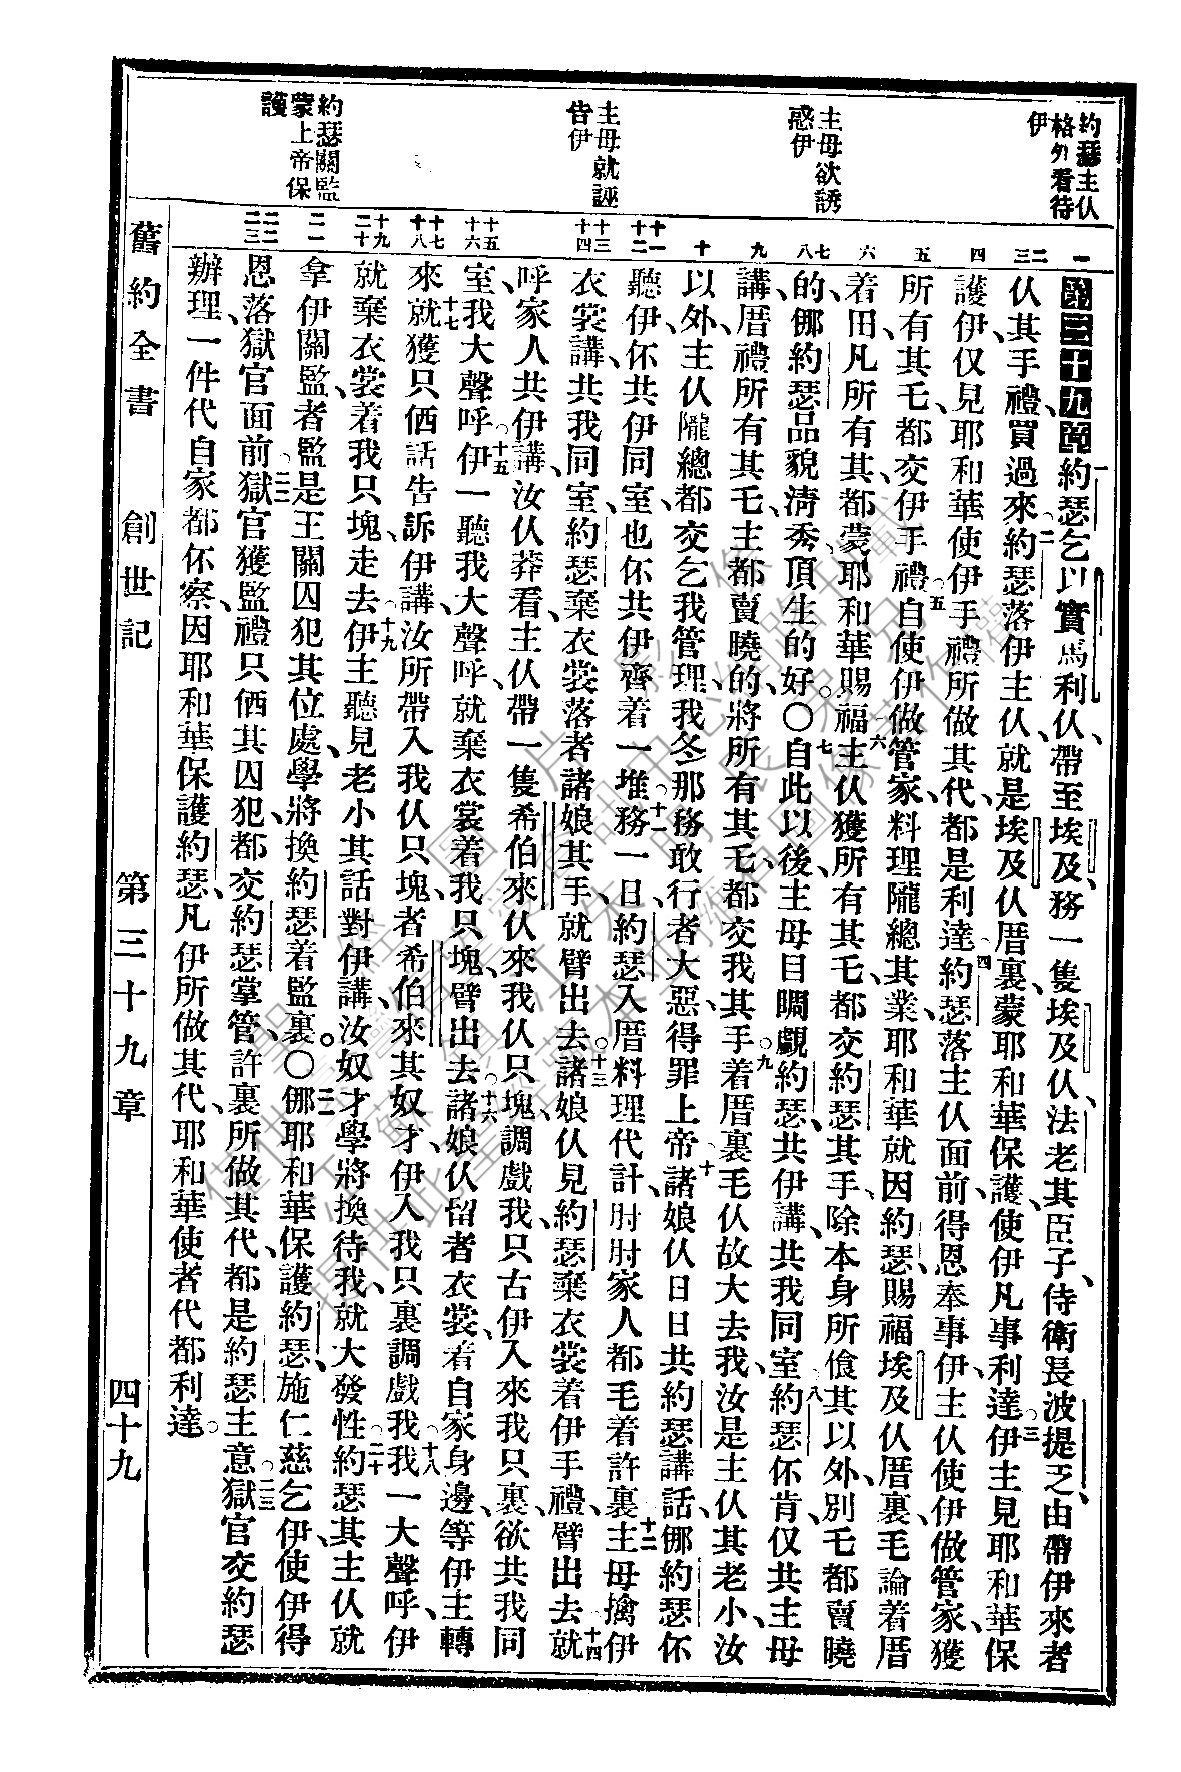 約瑟主仈
格外看待
伊
主母欲誘
惑伊
主母就誣
告伊
約瑟關監
蒙上帝保
護
一
二
三
四
五
六
七
八
九
十
十一
十二
十三
十四
十五
十六
十七
十八
十九
二十
二一
二二
二三
第三十九章約瑟乞以實馬利仈、帶至埃及、務一隻埃及仈、法老其臣子、侍衛長波提乏、由帶伊來者
仈其手禮、買過來、二約瑟落伊主仈、就是埃及仈厝裏、蒙耶和華保護、使伊凡事利達。三伊主見耶和華保
護伊、仅見耶和華使伊手禮所做其代、都是利達、四約瑟落主仈面前、得恩奉事伊、主仈使伊做管家、獲
所有其乇、都交伊手禮。五自使伊做管家、料理隴總其業、耶和華就因約瑟、賜福埃及仈厝裏、毛論着厝
着田、凡所有其、都蒙耶和華賜福、六主仈獲所有其乇、都交約瑟其手、除本身所飡其以外、別乇都賣曉
的、㑚約瑟品貌淸秀、頂生的好。〇七自此以後、主母目睭覷約瑟、共伊講、共我同室、八約瑟伓肯、仅共主母
講、厝禮所有其乇、主都賣曉的、將所有其乇、都交我其手。九着厝裏毛仈故大去我、汝是主仈其老小、汝
以外、主仈隴總都交乞我管理、我冬那務敢行者大惡、得罪上帝、十諸娘仈日日共約瑟講話、㑚約瑟伓
聽伊、伓共伊同室、也伓共伊齊着一堆、務一日、十一約瑟入厝料理代計、肘肘家人都毛着許裏、十二主母擒伊
衣裳講、共我同室、約瑟棄衣裳落者諸娘其手、就臂出去。十三諸娘仈見約瑟棄衣裳着伊手禮、臂出去、十四就
呼家人共伊講、汝仈莽看、主仈帶一隻希伯來仈來我仈只塊、調戲我、只古伊入來我只裏、欲共我同
室、我大聲呼、十五伊一聽我大聲呼、就棄衣裳着我只塊、臂出去。十六諸娘仈留者衣裳、着自家身邊、等伊主轉
來、十七就獲只倲話告訴伊講、汝所帶入我仈只塊、者希伯來其奴才、伊入我只裏調戲我、十八我一大聲呼、伊
就棄衣裳着我只塊走去、十九伊主聽見老小其話、對伊講、汝奴才學將換待我、就大發性、二十約瑟其主仈就
拿伊關監、者監是王關囚犯其位處、學將換約瑟着監裏。〇二一㑚耶和華保護約瑟、施仁慈乞伊、使伊得
恩、落獄官面前、二二獄官獲監禮只倲其囚犯、都交約瑟掌管、許裏所做其代、都是約瑟主意。二三獄官交約瑟
辦理、一件代自家都伓察、因耶和華保護約瑟、凡伊所做其代、耶和華使者代都利達。
舊約全書 創世記 第三十九章 四十九